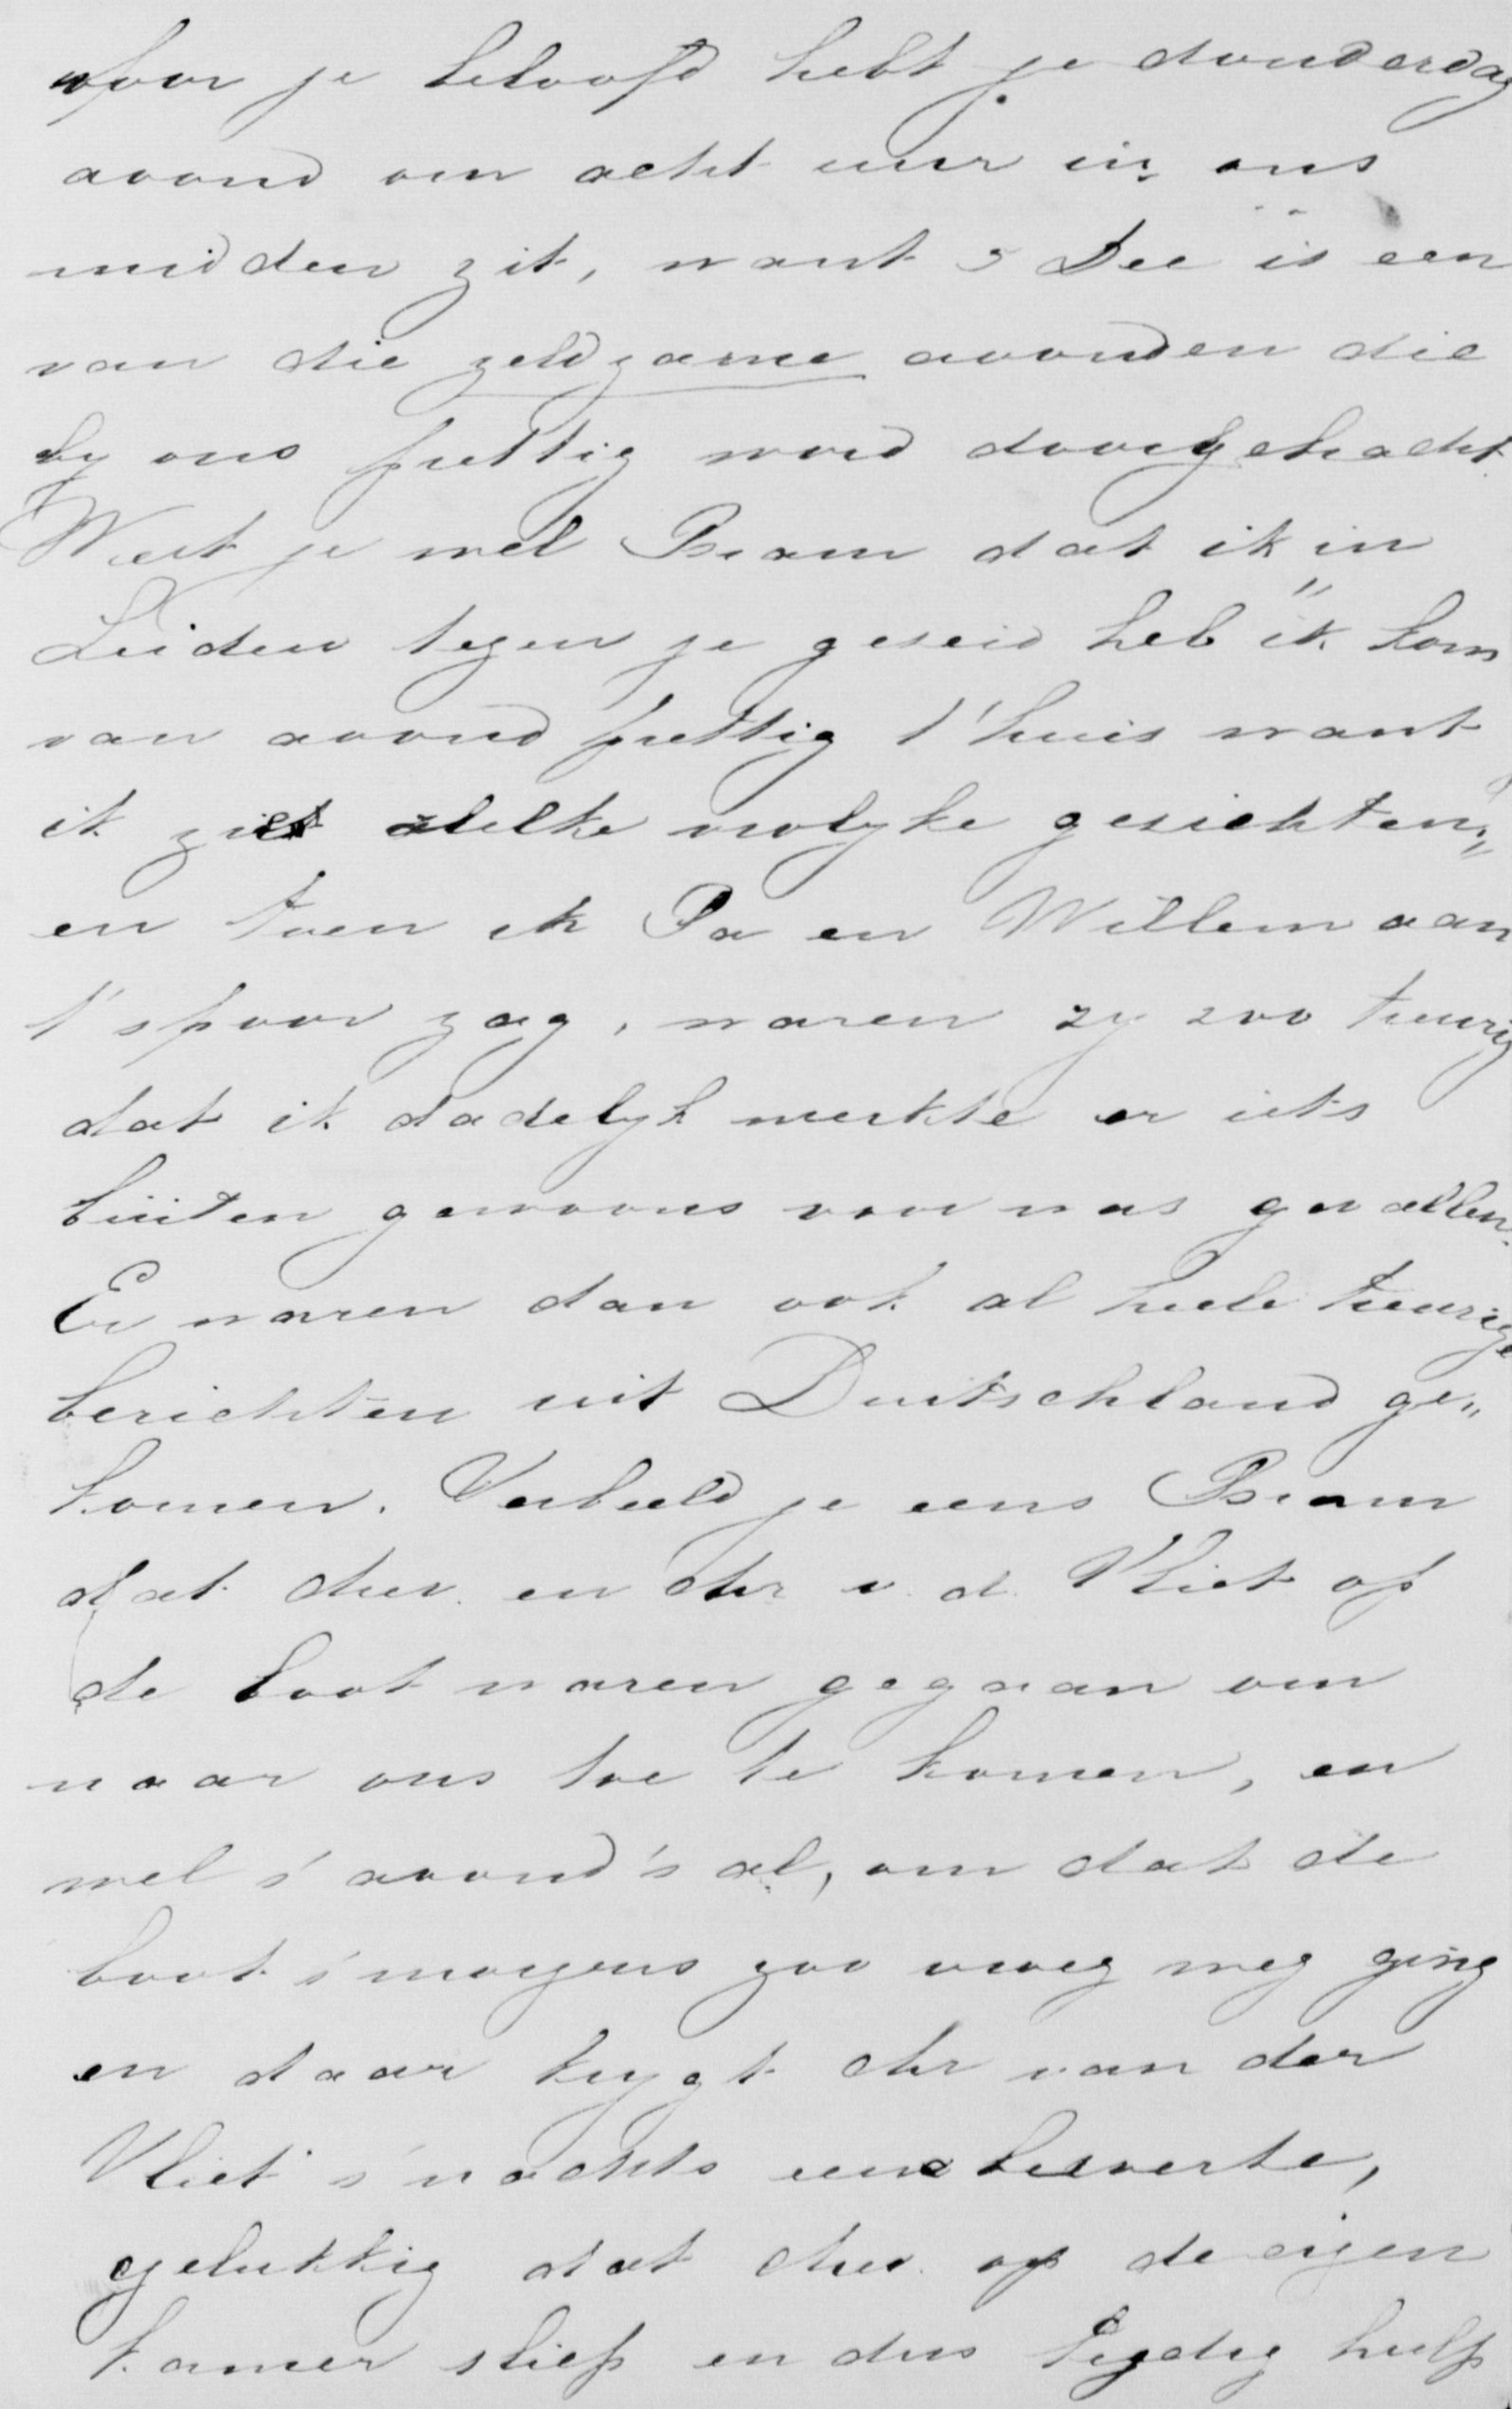 voor je beloofd hebt je donderdag
avond om acht uur in ons
midden zit, want 5 Dec is een
van die zeldzame avonden die
by ons prettig word doorgebracht.
Weet je wel Bram dat ik in
Leiden tegen je geseid heb "ik kom
van avond prettig t'huis want
ik ziet elke vrolyke gesichten,"
en toen ik Pa en Willem aan
t'spoor zag, waren zy zoo treurig
dat ik dadelyk merkte er iets
buiten gewoons voor was gevallen.
Er waren dan ook al heele treurige
berichten uit Duitschland ge„
komen. Verbeeld je eens Bram
dat mev. en mr v. d. Vliet op
de boot waren gegaan om
naar ons toe te komen, en
wel s'avond's al, om dat de
boot s'morgens zoo vroeg weg ging
en daar krygt mr van der
Vliet s'nachts een beroerte,
gelukkig dat mev. op de eigen
kamer sliep en dus tydig hulp